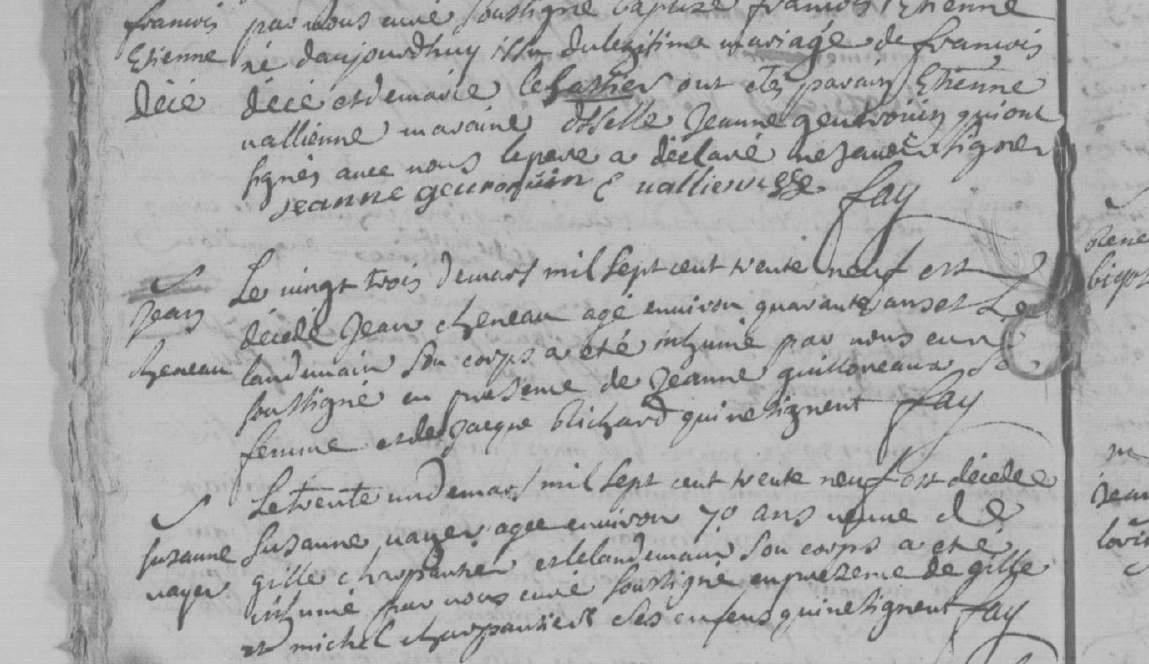 francois
Etienne
Décé
par nous curé soussigné baptizé francois Etienne
né daujourdhuy issu du legitime mariage de francois
décé et de marie le ont etés parain Etienne
vallienne maraine dselle Jeanne qui ont
signés avec nous le pere a déclaré ne savoir signer
Jeanne E fay
S
Jean
cheneau
Le vingt trois de mars mil sept cent trente neuf est
décédé Jean cheneau agé environ quarante ans et Le
landemain son corps a eté inhumé par nous curé
soussigné en presence de Jeanne guilloneaux sa
femme et de Jacque Richard qui ne signent fay
S
susanne
nayer
Le trente un de mars mil sept cent trente neuf est décédée
susanne nayer agée environ 70 ans veuve de
gille charpantier et le landemain son corps a eté
inhumé par nous curé soussigné en prezence de gille
et michel charpantier ses enfens qui ne signent fay
Rene
bigot
Jean